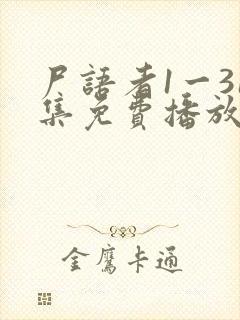 尸語者1一3
集免費播放
金鷹卡通